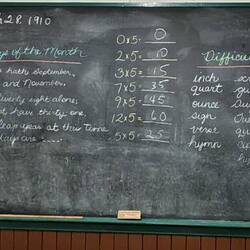 28, 1910
of the Month
hath September,
and November,
twenty eight alone;
have thirty-one
leap year at this time
days are ....
0x5= 0
2x5= 10
3x5= 15
7x5= 35
9x5= 45
12x5= 60
5x5= 25
Difficul
inch
quart
ounce
sign
verse
hymn